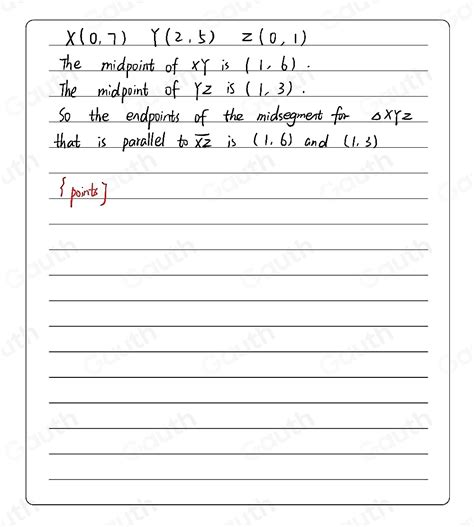 X(0,7) Y(2,5) Z(0,1)
The midpoint of XY is (1,6).
The midpoint of YZ is (1,3).
So the endpoints of the midsegment for △XYZ
that is parallel to X̅Z̅ is (1,6) and (1,3)
{points}